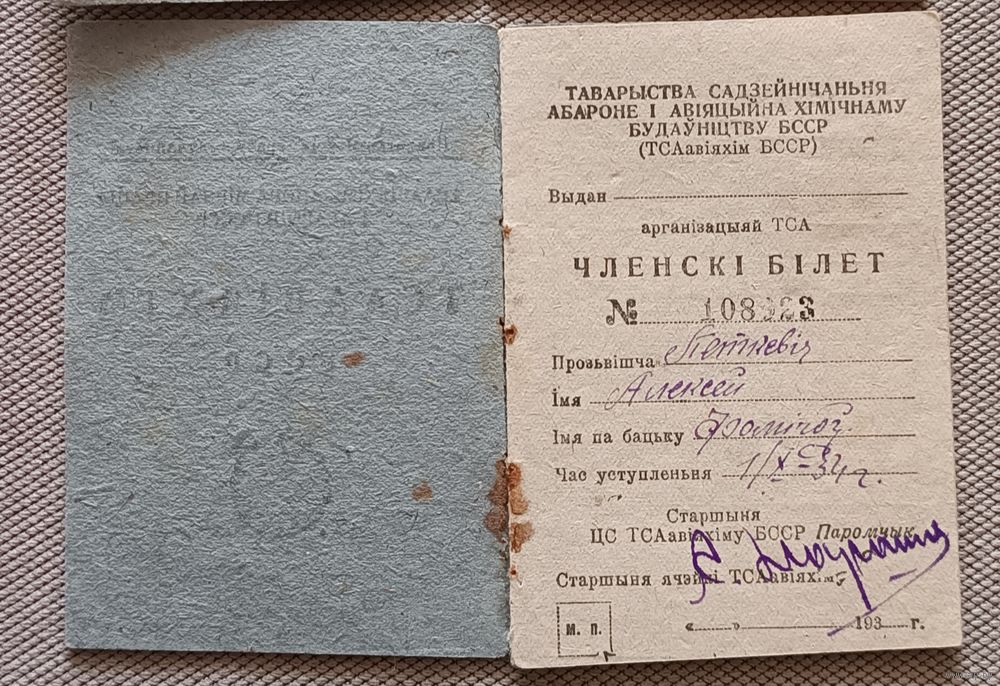 ТАВАРЫСТВА САДЗЕЙНІЧАНЬНЯ
АБАРОНЕ І АВІЯЦЫЙНА ХІМІЧНАМУ
БУДАЎНІЦТВУ БССР
(ТСАавіяхім БССР)
Выдан
арганізацыяй ТСА
ЧЛЕНСКІ БІЛЕТ
№ 108323
Прозьвішча Петкевіч
Імя Алексей
Імя па бацьку
Час уступленьня 1/X-34 г.
Старшыня
ЦС ТСАавіяхіму БССР Паромчык
Старшыня ячэйкі ТСАавіяхіму
М. П.
«» 193 г.